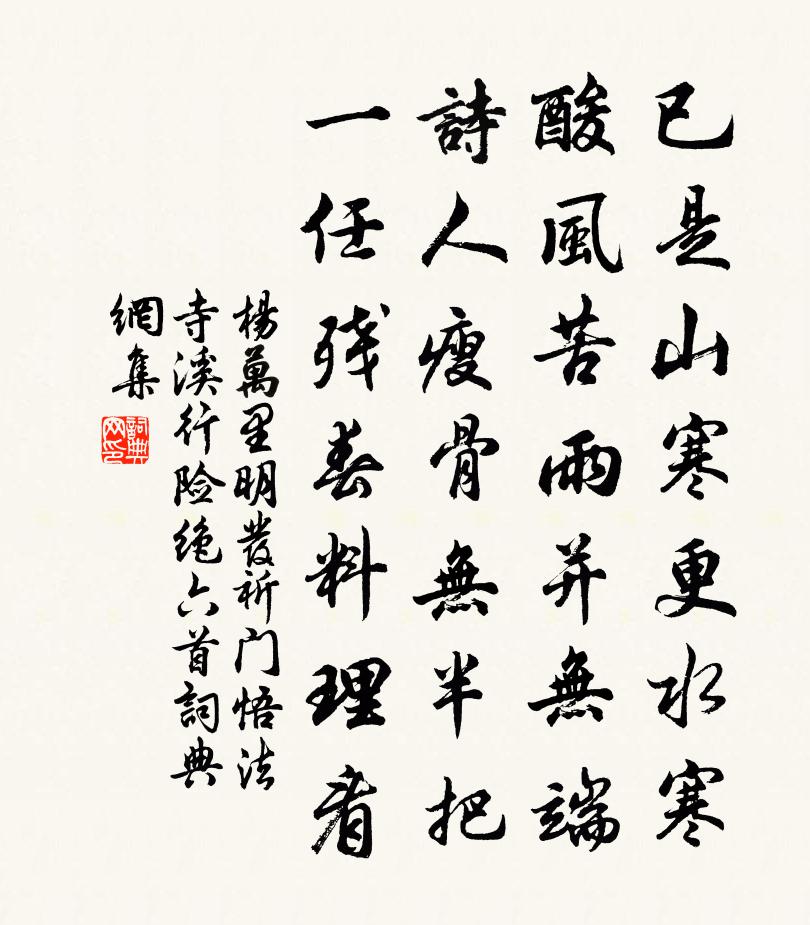 已是山寒更水寒
酸風苦雨并無端
詩人瘦骨無半把
一任残春料理看
楊萬里明發祈门悟法
寺溪行险绝六首詞典
網集
詞典
网印